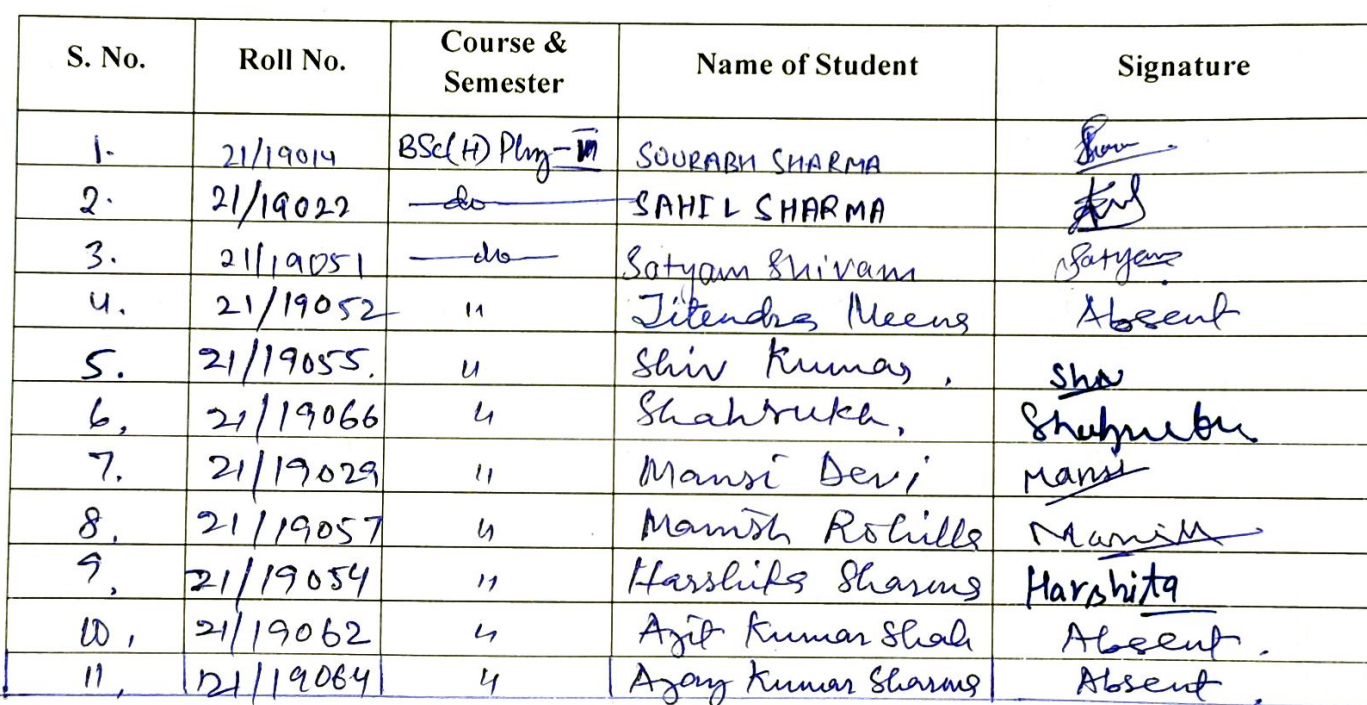 S. No. Roll No. Course & Semester Name of Student Signature
1. 21/19014 BSc(H) Phy-III SOURABH SHARMA
2. 21/19022 do SAHIL SHARMA
3. 21/19051 do Satyam Shivam Satyam
4. 21/19052 " Jitendra Meena Absent
5. 21/19055. " Shiv Kumar, Shiv
6, 21/19066 " Shahrukh,
7. 21/19029 " Mansi Devi Mansi
8, 21/19057 " Manish Rohilla Manish
9, 21/19054 " Harshita Sharma Harshita
10, 21/19062 " Ajit Kumar Shah Absent.
11, 21/19064 " Ajay Kumar Sharma Absent.